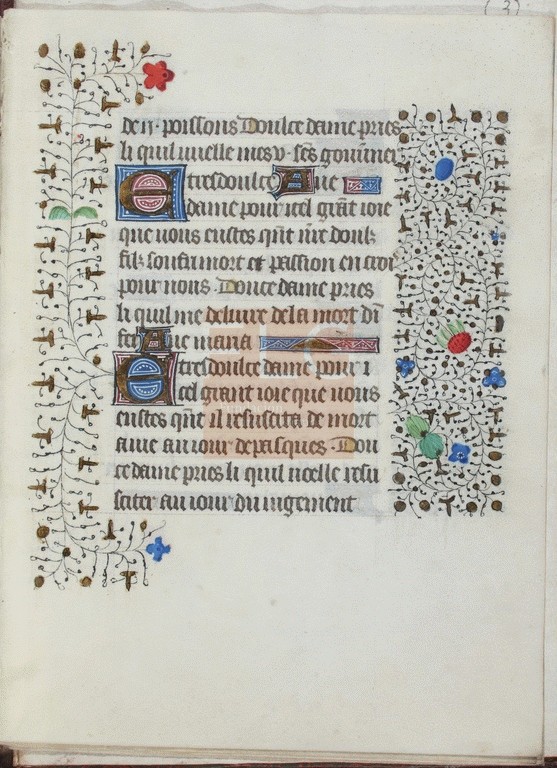 (3)
de ii · poissons Doulce dame pries
li quil vueille mes v · sẽs gouuiner
E tresdoulce Aue
dame pour icel grãt ioie
que vous eustes qñt nr̃e doulz
filz souffri mort et passion en croix
pour nous . Douce dame pries
li quil me deliure de la mort dñ
fer Aue maria
E tresdoulce dame pour i
cel grant ioie que vous
eustes qñt il resuscita de mort
a uie au iour de pasques · Dou
ce dame pries li quil uoelle resu
sciter au iour du iugement